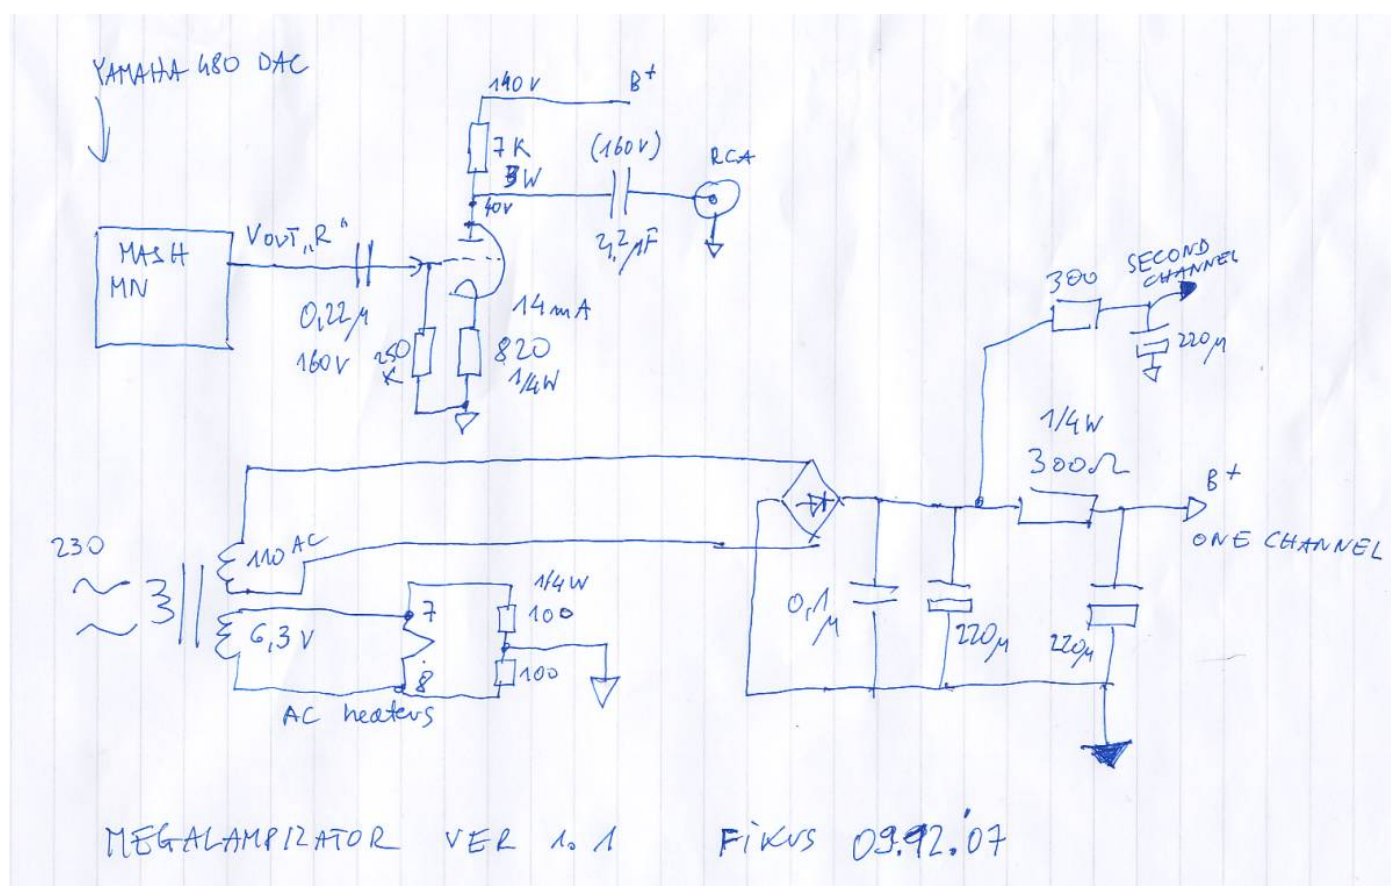 YAMAHA 480 DAC
140V
B+
7K
3W
(160V)
RCA
40V
2,2µF
MASH
MN
VOUT "R"
0,22µ
160V
250
K
14mA
820
1/4W
300
SECOND
CHANNEL
220µ
1/4W
300Ω
B+
ONE CHANNEL
230
110 AC
6,3V
7
8
1/4W
100
100
AC heaters
0,1
µ
220µ
220µ
MEGALAMPIZATOR VER 1.1 FIKUS 09.12.'07